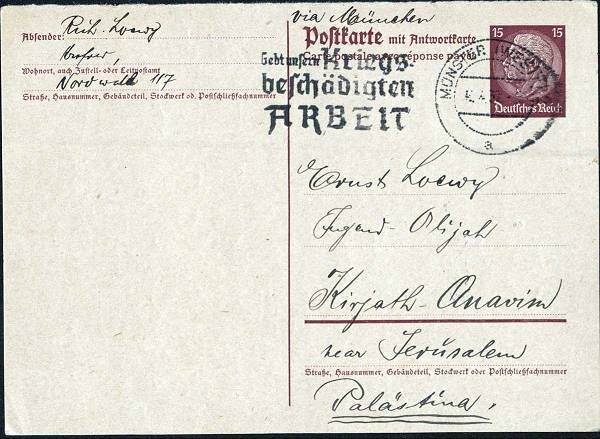 Absender: Rich. Loewy
Wohnort, auch Zustell- oder Leitpostamt
117
Straße, Hausnummer, Gebäudeteil, Stockwerk od. Postschließfachnummer
via München
Postkarte mit Antwortkarte
Carte postale avec réponse payée
Gebt unsern Kriegs-
beschädigten
ARBEIT
MÜNSTER (WESTF)
a
15 15
Deutsches Reich
Ernst Loewy
Jugend-Alijah
Kirjath-Anavim
near Jerusalem
Straße, Hausnummer, Gebäudeteil, Stockwerk oder Postschließfachnummer
Palästina.